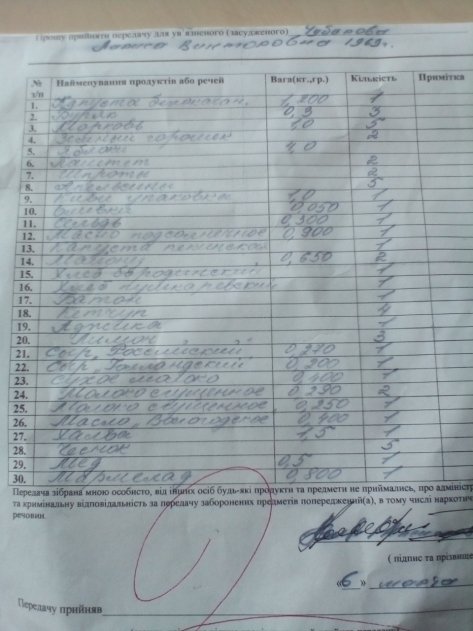 Прошу прийняти передачу для ув'язненого (засудженого)
Викторовна 1969г.
№ з/п Найменування продуктів або речей Вага(кт.,гр.) Кількість Примітка
1. Капуста 1,200 1
2. Буряк 0,9 3
3. Морковь 1,0 5
4. горошек 2
5. Яблоки 4,0
6. Паштет 2
7. Шпроты 2
8. Апельсины 5
9. Киви упаковка 1,0 1
10. 0,050 1
11. 0,300 1
12. Масло подсолнечное 0,900 1
13. Капуста пекинская 1
14. Майонез 0,650 2
15. Хлеб бородинский 1
16. Хлеб пушкаревский 1
17. Батон 1
18. Кетчуп 4
19. Аджика 1
20. Лимон 3
21. Сыр „Российский" 0,270 1
22. Сыр „Голландский" 0,200 1
23. Сухое молоко 0,400 1
24. Молоко сгущенное 0,290 2
25. Молоко сгущенное 0,250 1
26. Масло „Вологодское" 0,400 1
27. Халва 1,5 1
28. Чеснок 5
29. Мёд 0,5 1
30. Мармелад 0,800 1
Передача зібрана мною особисто, від інших осіб будь-які продукти та предмети не приймались, про адміністр
та кримінальну відповідальність за передачу заборонених предметів попереджений(а), в тому числі наркотич
речовин.
( підпис та прізвище
«6» марта
Передачу прийняв